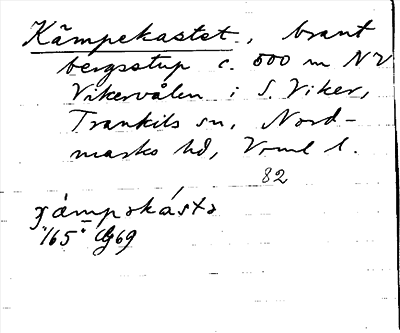 Kämpekastet, brant
bergsstup c. 500 m NV
Vikervålen i S. Viker,
Trankils sn, Nord-
marks hd, Vrml l.
82
165 69